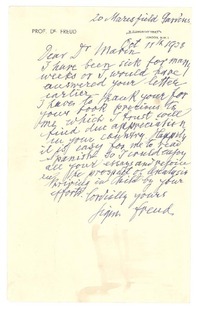 20 Maresfield Gardens
PROF. DR. FREUD
Oct 11th 1938
Dear Dr
I have been sick for many
weeks or I would have
answered your letter
earlier.
I have to thank you for
your book precious to
me which I trust will
find due appreciation
in your country. Happily
it is easy for me to read
Spanish so I could enjoy
all your essays and rejoice
in the prospect of analysis
thriving in Chile by your
efforts.
Cordially yours
Sigm. Freud